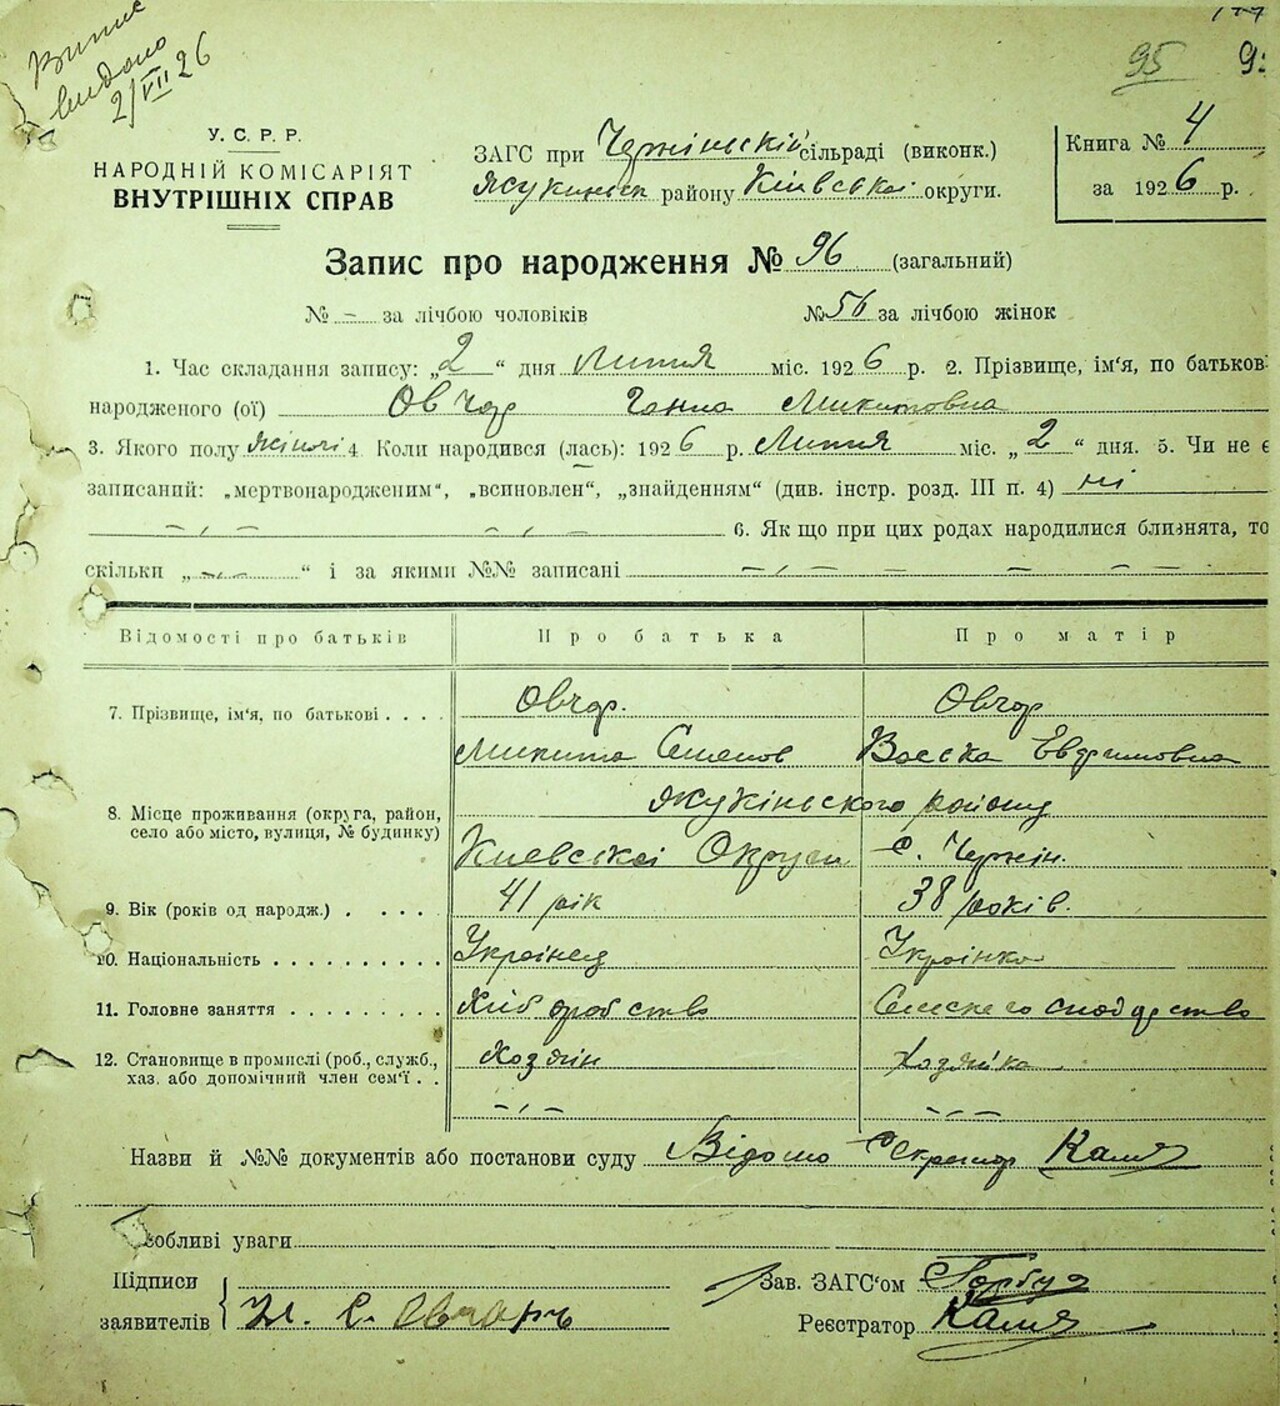 Витис
видано
2/VII 26
95
У. С. Р. Р.
НАРОДНІЙ КОМІСАРІЯТ
ВНУТРІШНІХ СПРАВ
ЗАГС при Чернінській сільраді (виконк.)
району Київської округи.
Книга № 4
за 1926 р.
Запис про народження № 96 (загальний)
№ – за лічбою чоловіків
№ 56 за лічбою жінок
1. Час складання запису: „2“ дня Липня міс. 1926 р. 2. Прізвище, ім'я, по батьков
народженого (ої) Овчар Ганна Микитовна
3. Якого полу жіночі 4. Коли народився (лась): 1926 р. Липня міс. „2“ дня. 5. Чи не є
записаний: „мертвонародженим“, „всиновлен“, „знайденням“ (див. інстр. розд. III п. 4) ні
6. Як що при цих родах народилися близнята, то
скільки „ “ і за якими №№ записані
Відомості про батьків Про батька Про матір
7. Прізвище, ім'я, по батькові . . . . Овчар. Овчар
Микита Семенов Васська Евдримовна
8. Місце проживання (округа, район, село або місто, вулиця, № будинку) Жукінського району
Киевської Округи с. Чернін.
9. Вік (років од народж.) . . . . 41 рік 38 років.
10. Національність . . . . . . . . . . Українец Українка
11. Головне заняття . . . . . . . . . Хліборобство Сельске господарство
12. Становище в промислі (роб., служб., Хозяін Хозяйка
хаз. або допомічний член сем'ї . .
Назви й №№ документів або постанови суду Відомо Секретар Каля
собливі уваги
Підписи
заявителів Н. С. Овчаръ
Зав. ЗАГС'ом Горбуз
Реєстратор Каля